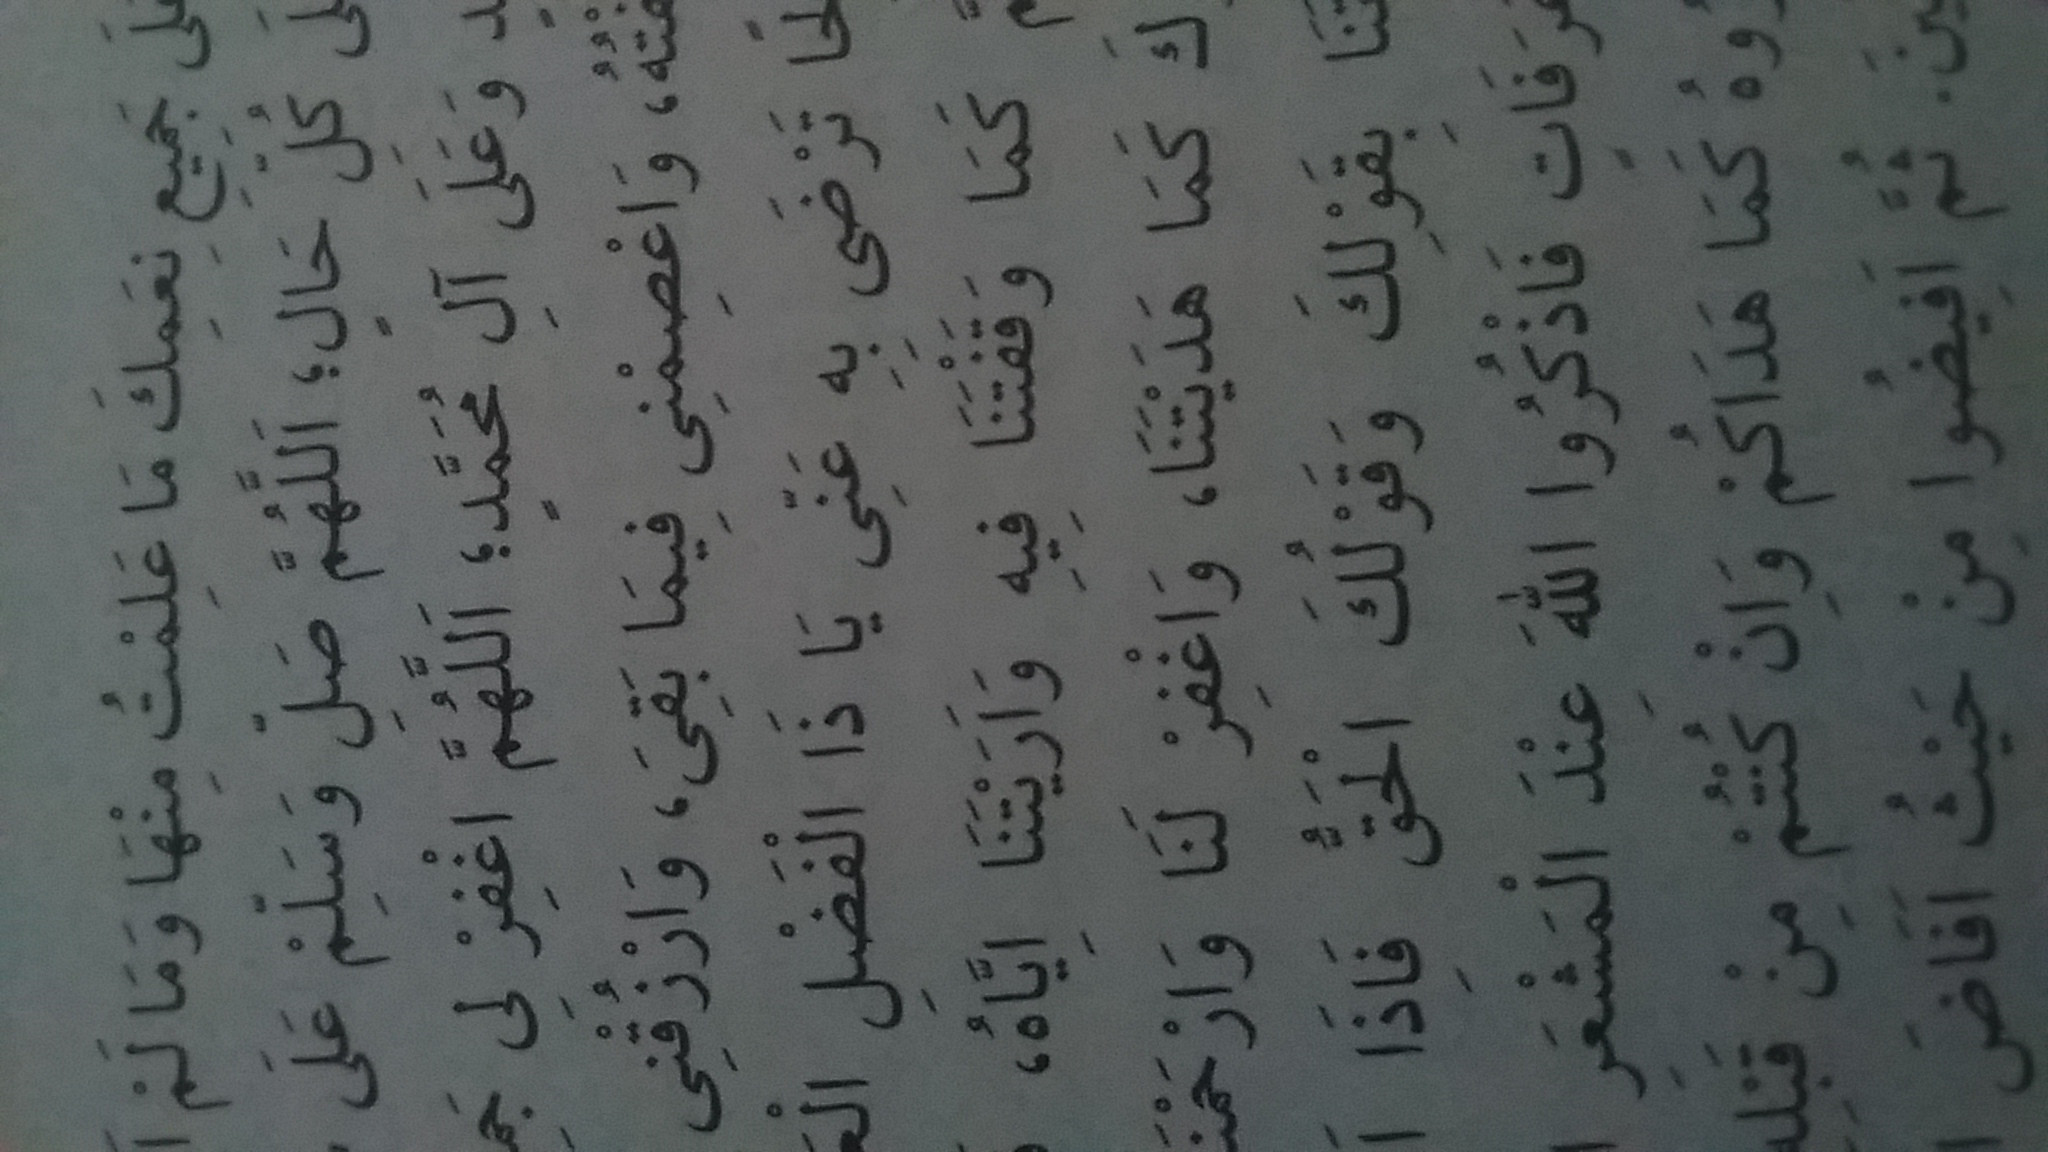 جَمِيعِ نِعَمِكَ مَا عَلِمْتُ مِنْهَا وَمَا لَمْ
كُلِّ حَالٍ؛ اَللَّهُمَّ صَلِّ وَسَلِّمْ عَلَى
وَعَلَى آلِ مُحَمَّدٍ؛ اَللَّهُمَّ اغْفِرْ لِى
وَاعْصِمْنِى فِيمَا بَقِىَ، وَارْزُقْنِى
تَرْضَى بِهِ عَنِّى يَا ذَا الْفَضْلِ
كَمَا وَقَفْتَنَا فِيهِ وَاَرَيْتَنَا اِيَّاهُ،
كَمَا هَدَيْتَنَا، وَاغْفِرْ لَنَا
بِقَوْلِكَ وَقَوْلُكَ الْحَقُّ فَاِذَا
عَرَفَاتٍ فَاذْكُرُوا اللّٰهَ عِنْدَ الْمَشْعَرِ
كَمَا هَدَاكُمْ وَاِنْ كُنْتُمْ مِنْ قَبْلِهِ
ثُمَّ اَفِيضُوا مِنْ حَيْثُ اَفَاضَ